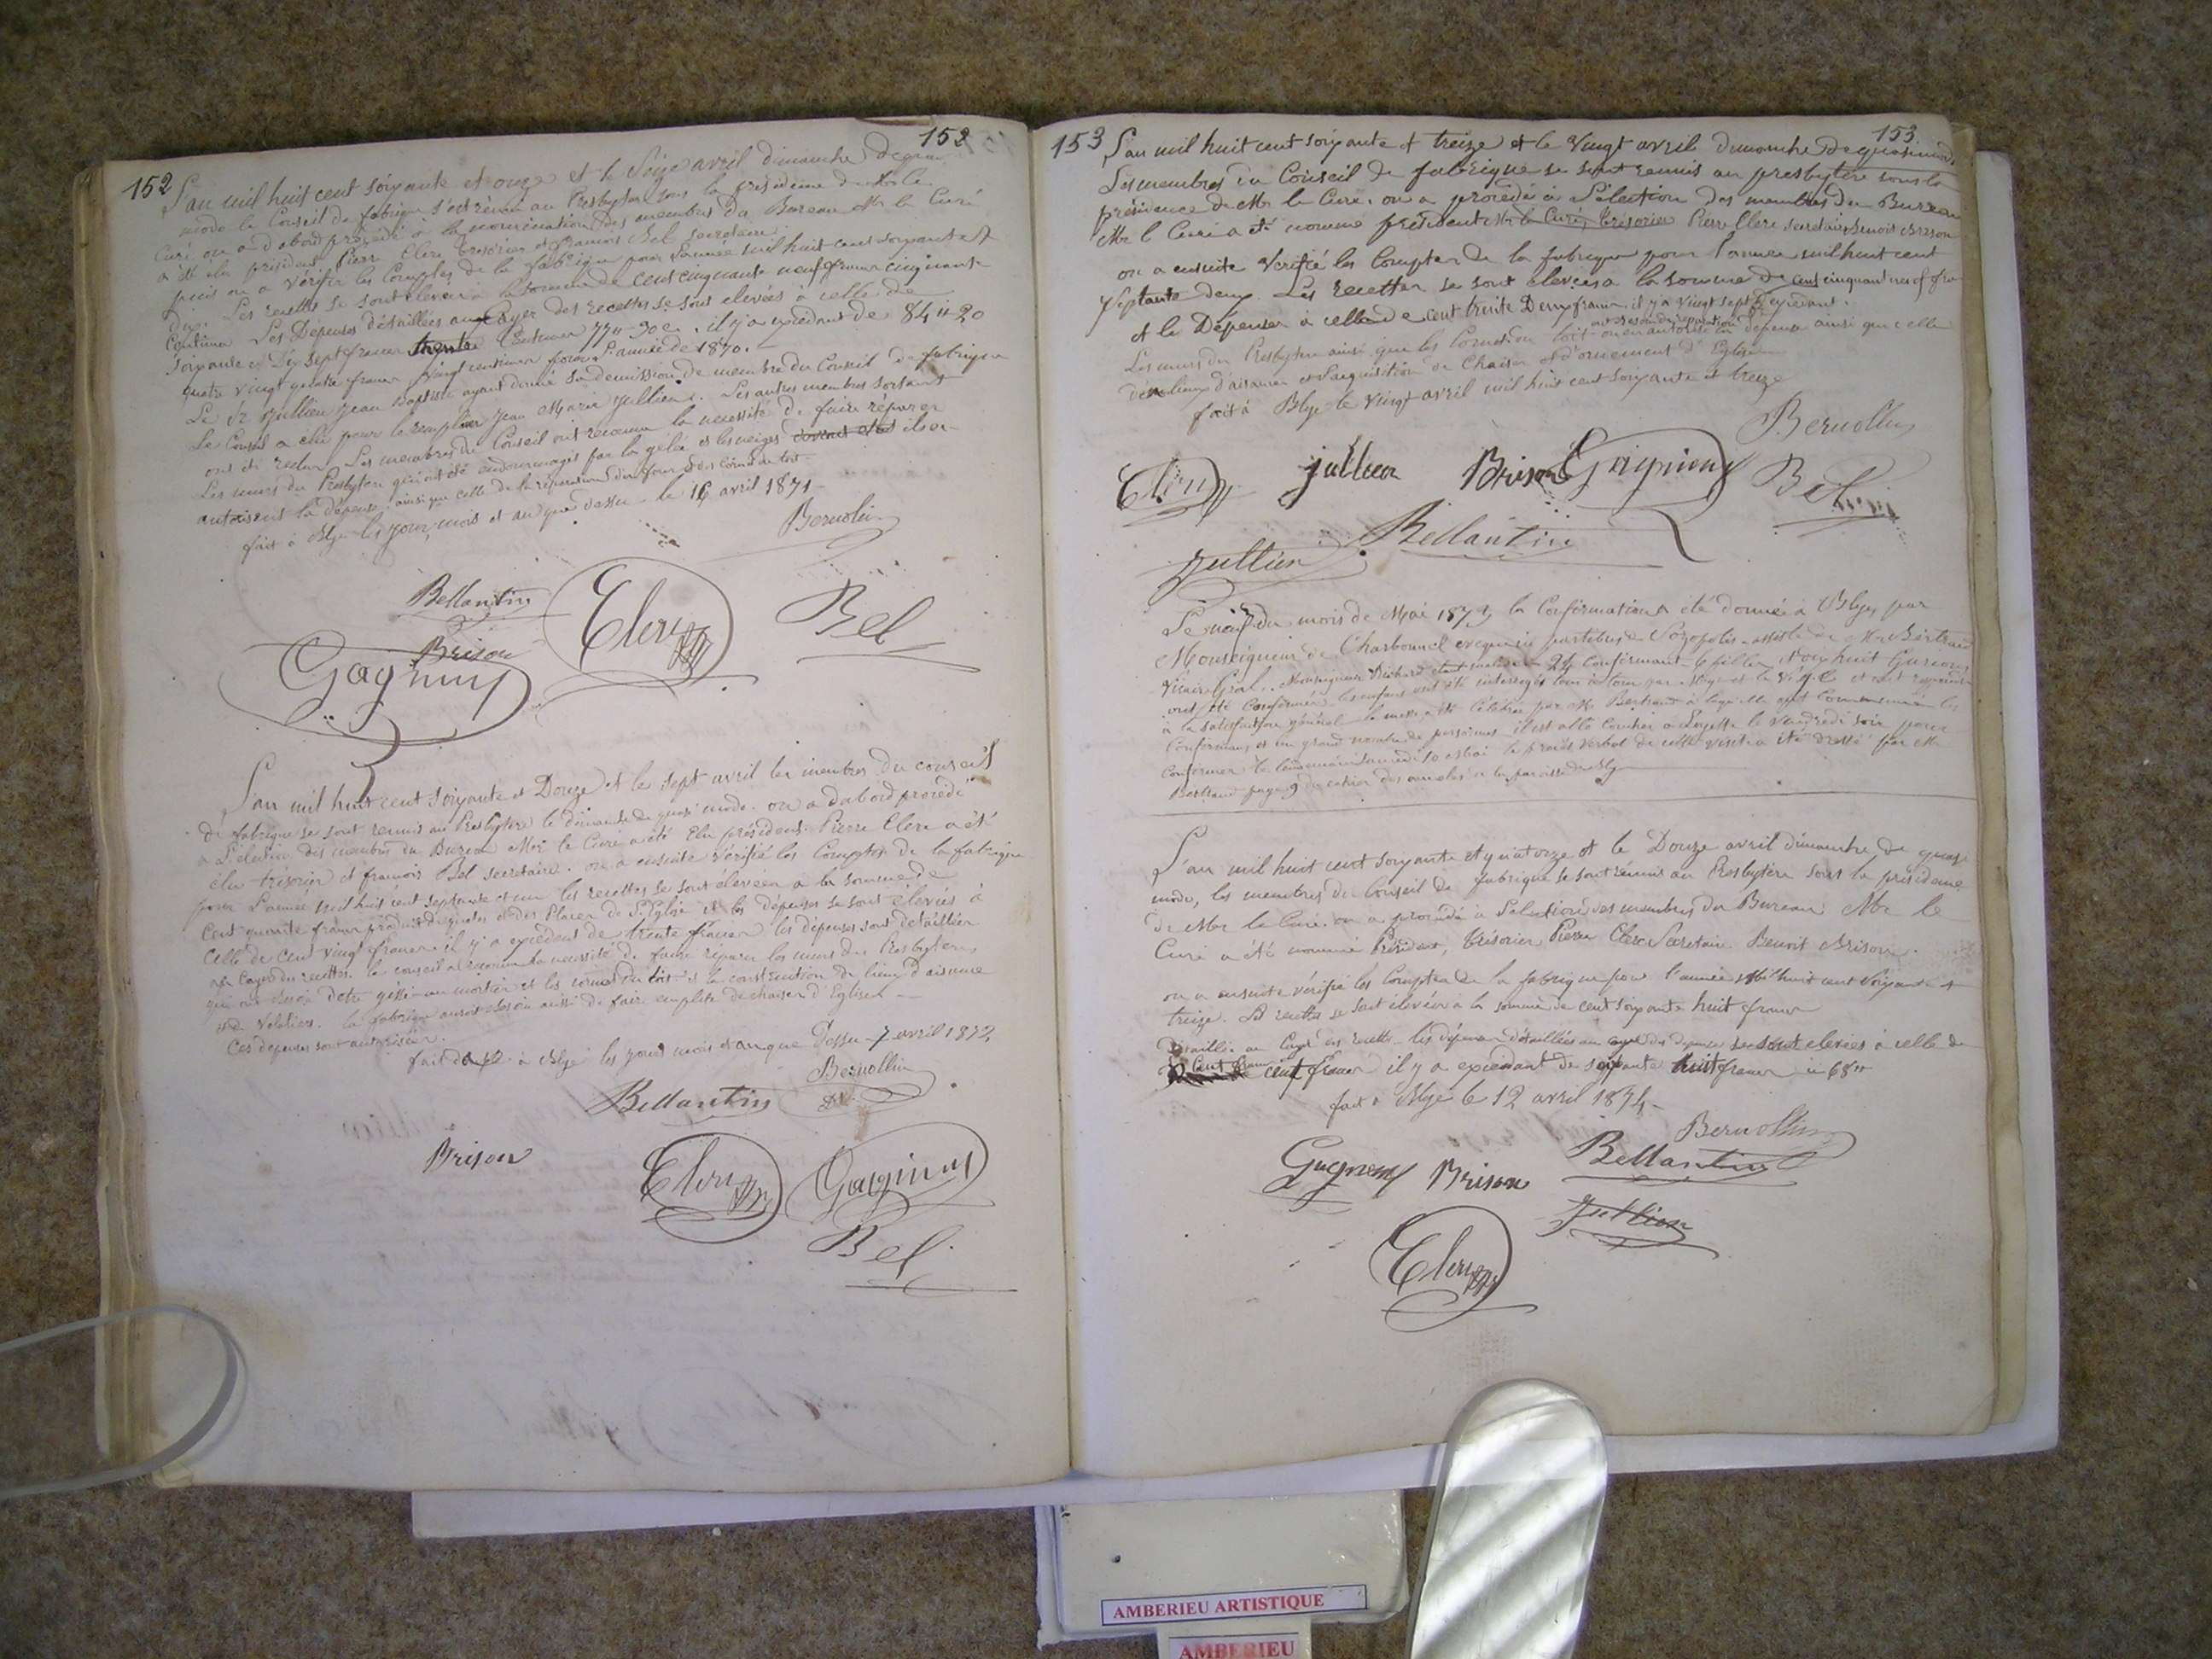 152
152
L'an mil huit cent soixante et onze et le Seize avril dimanche de quasi
modo le Conseil de fabrique s'est réuni au Presbytere sous la présidence de Mr le
Curé on a d'abord procédé à la nomination des membres du Bureau Mr le Curé
a été élu président Pierre Clerc trésorier et francois Bel secretaire.
puis on a vérifié les Comptes de la fabrique pour l'année mil huit cent soixante et
dix. Les recettes se sont élevées à la somme de Cent cinquante neuf francs cinquante
Centimes Les Dépenses détaillées au Cayer des recettes se sont elevées à celle de
soixante et Dix sept francs trente Centimes 77"30c. il y a excédent de 84"20
quatre vingt quatre francs vingt centimes pour l'année de 1870.
Le Sr Jullien Jean Baptiste ayant donné sa demission de membre du Conseil de fabrique
Le Conseil a élu pour le remplacer Jean Marie Jullien. Les autres membres sortant
ont été reelus. Les membres du Conseil ont reconnu la necessité de faire réparer
Les murs du Presbytere qui ont été endommagés par la gelée et les neiges ils en
autorisent la dépense. ainsi que celle de la réparation du four et des cornes du toit
fait à Blye les jour, mois et an que dessus le 16 avril 1871
Bernolin
Bellantin
Clerc
Bel
Brison
Gagneux
L'an mil huit cent soixante et Douze et le sept avril les membres du conseil
de fabrique se sont reunis au Presbytere le dimanche de quasi modo. on a dabord procédé
a L'élection des membres du Bureau Mr le Curé a été Elu président. Pierre Clerc a été
élu trésorier et francois Bel secretaire. on a ensuite vérifié les Comptes de la fabrique
pour L'année mil huit cent septante et un les recettes se sont élevées a la somme de
Cent francs produit des quetes et des Places de L'Eglise et les dépenses se sont élevées à
Celle de Cent vingt francs il y a excédent de trente francs les dépenses sont détaillées
au Cayer des recettes. le conseil a reconnu la necessité de faire réparer les murs du Presbytere
qui ont besoin detre mortier et les cornes du toit et la construction de lieux d'aisance
et de Volaliers. la fabrique auroit besoin aussi de faire emplete de chaises d'Eglise
Ces depenses sont autorisées.
fait à Blye les jour mois et an que Dessus 7 avril 1872
Bernollin
Bellantin
Brison
Clerc
Gagneux
Bel
153
153
L'an mil huit cent soixante et treize et le Vingt avril dimanche de quasimodo
Les membres du Conseil de fabrique se sont reunis au presbytere sous la
présidence de Mr le Curé, on a procédé à L'élection des membres du Bureau
Mr l Curé a été nommé président Mr le Curé, trésorier Pierre Clerc secretaire Benoit Brison
on a ensuite Vérifié les Comptes de la fabrique pour l'année mil huit cent
septante deux. Les recettes se sont elevées a la somme de cent cinquant neuf fra
et la Dépenses à celle de cent trente Deux francs, il y a vingt sept f expedant.
Les murs du Presbytere ainsi que les Cornes du toit ont besoin de réparation on en autorise la depense ainsi que celle
des lieux d'aisance et l'acquisition de Chaises et d'ornement d'Eglise
fait à Blye le vingt avril mil huit cent soixante et treize
Bernollin
Clerc
jullien
Brison
Gagneux
Bel
Bellantin
Jullien
Le neuf du mois de Mai 1873 la Confirmation a été donnée a Blye, par
Monseigneur de Charbonnel eveque in partibus de Sozopolis assisté de Mr Bertrand
Vicaire Gral. Monseigneur Richard étant malade 24 Confirmant 6 filles et dix huit Garcons
ont été Confirmés. les enfans ont été interrogés tour à tour par Mgr et le V. G. et ont repondu
à la satisfaction général la messe a été Celebrée par Mr Bertrand à laquelle ont Communié les
Confirmans et un grand nombre de personnes. il est allé Coucher à Loyette le Vendredi soir pour
Confirmer le lendemain Samedi 10 mai le procés verbal de cette visite a été dressé par Mr
Bertrand page 9 du cahier des annales de la paroisse de Blye
L'an mil huit cent soixante et quatorze et le Douze avril dimanche de quasi
modo, les membres du Conseil de fabrique se sont réunis au Presbytere sous la présidence
de Mr le Curé. on a procédé à L'election des membres du Bureau Mr le
Curé a été nommé Président, trésorier Pierre Clerc Secretaire Benoit Brison.
on a ensuite vérifié les Comptes de la fabrique pour l'année Mil huit cent soixante et
treize. Les recettes se sont élevées à la somme de cent soixante huit francs
détaillé au Cayer des recettes les dépenses détaillées au cayer des depenses se sont elevées à celle de
Cent francs cent francs il y a expedant de soixante huit francs ci 68"
fait à Blye le 12 avril 1874
Bernollin
Bellantin
Gagneux
Brison
Jullien
Clerc
AMBERIEU ARTISTIQUE
AMBERIEU